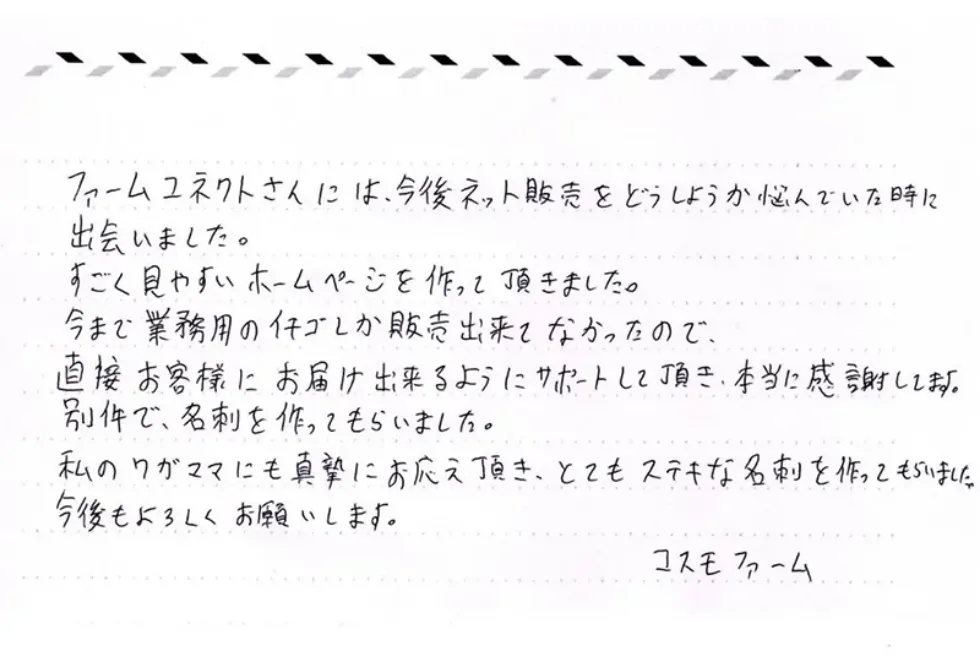 ファームコネクトさんには、今後ネット販売をどうしようか悩んでいた時に
出会いました。
すごく見やすいホームページを作って頂きました。
今まで業務用のイチゴしか販売出来てなかったので、
直接お客様にお届け出来るようにサポートして頂き、本当に感謝してます。
別件で、名刺を作ってもらいました。
私のワガママにも真摯にお応え頂き、とてもステキな名刺を作ってもらいました。
今後もよろしくお願いします。
コスモファーム